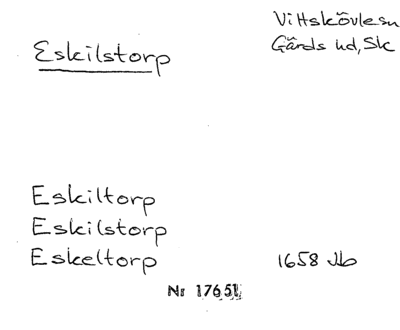 Vittskövle sn
Gärds hd, Sk
Eskilstorp
Eskiltorp
Eskilstorp
Eskeltorp 1658 Jb
Nr 17651